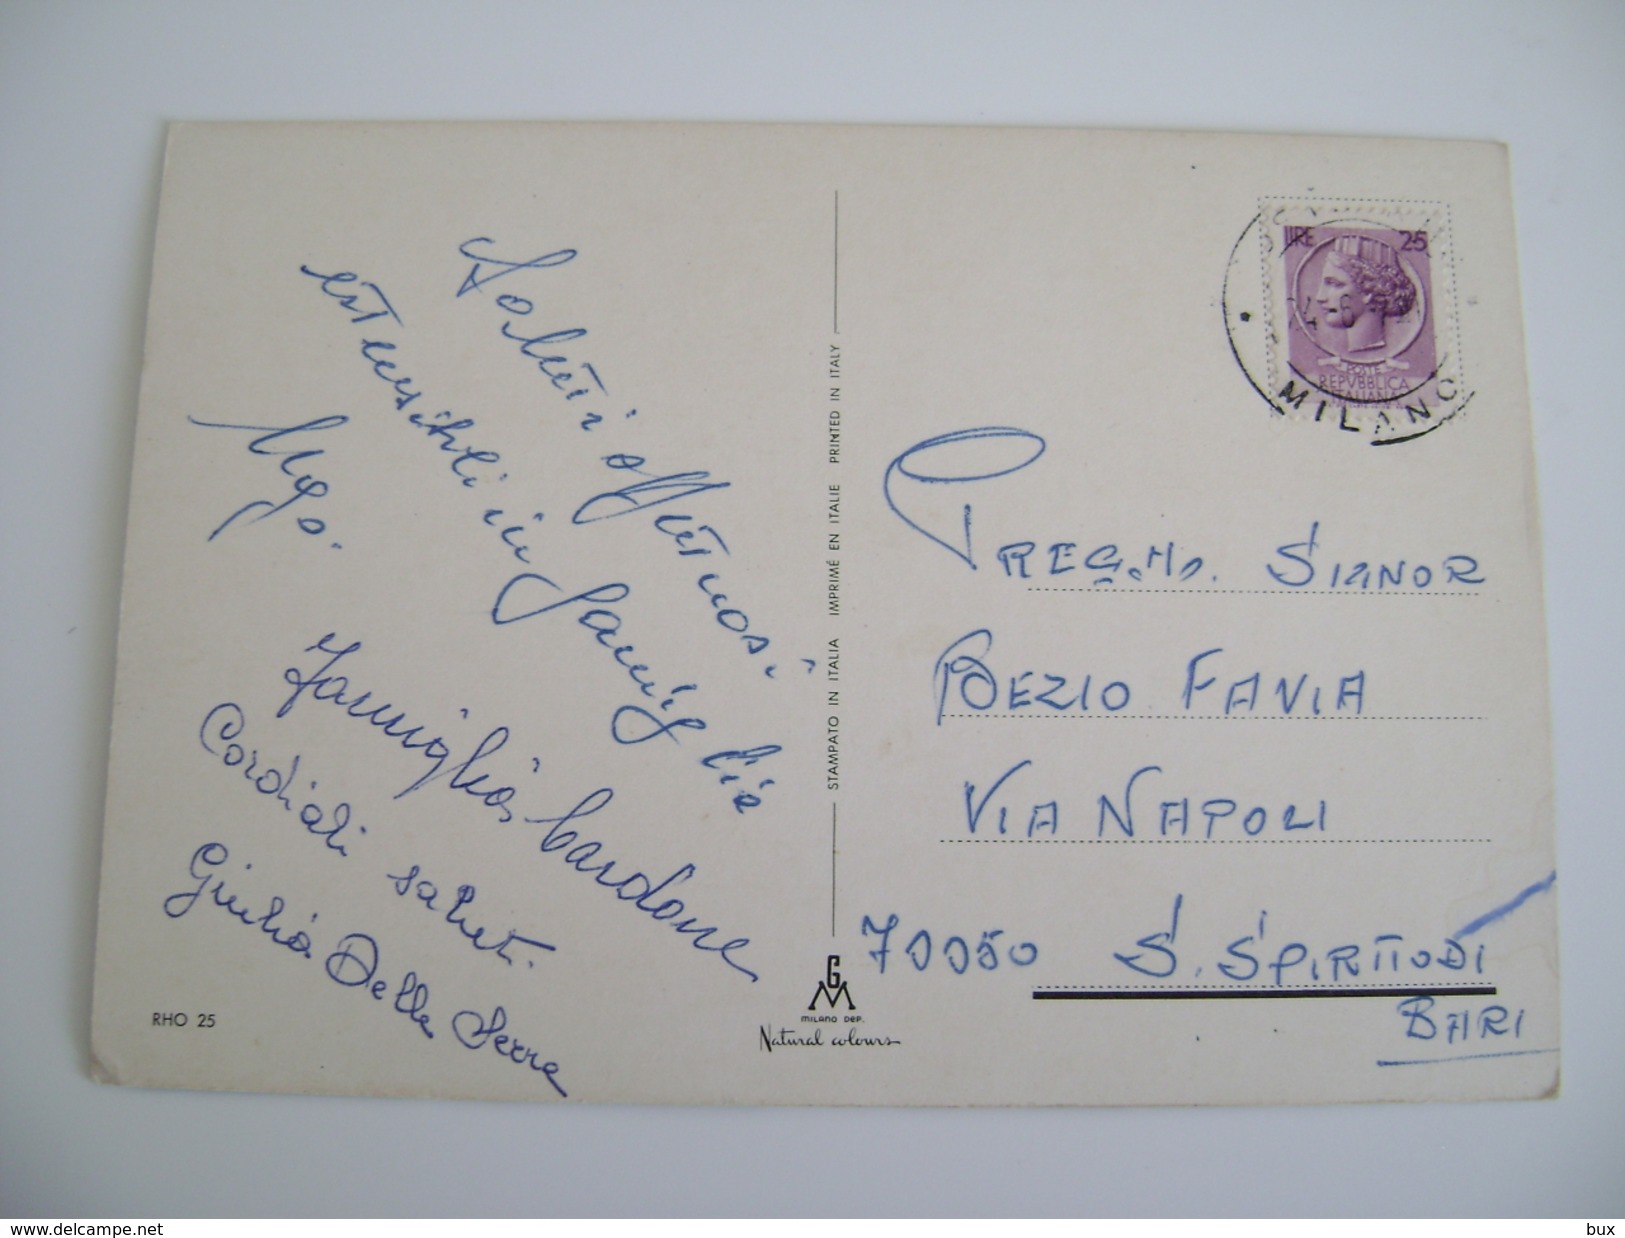 Saluti affettuosi
estensibili in famiglia
Ugo.
Famiglia Cardone
Cordiali saluti.
Giulia Della Serra
RHO 25
STAMPATO IN ITALIA IMPRIMÉ EN ITALIE PRINTED IN ITALY
GM
MILANO DEP.
Natural colours
LIRE 25
POSTE
REPVBBLICA
ITALIANA
MILANO
PREG.MO. SIGNOR
BEZIO FAVIA
VIA NAPOLI
70050 S. SPIRITO DI
BARI
www.delcampe.net
bux